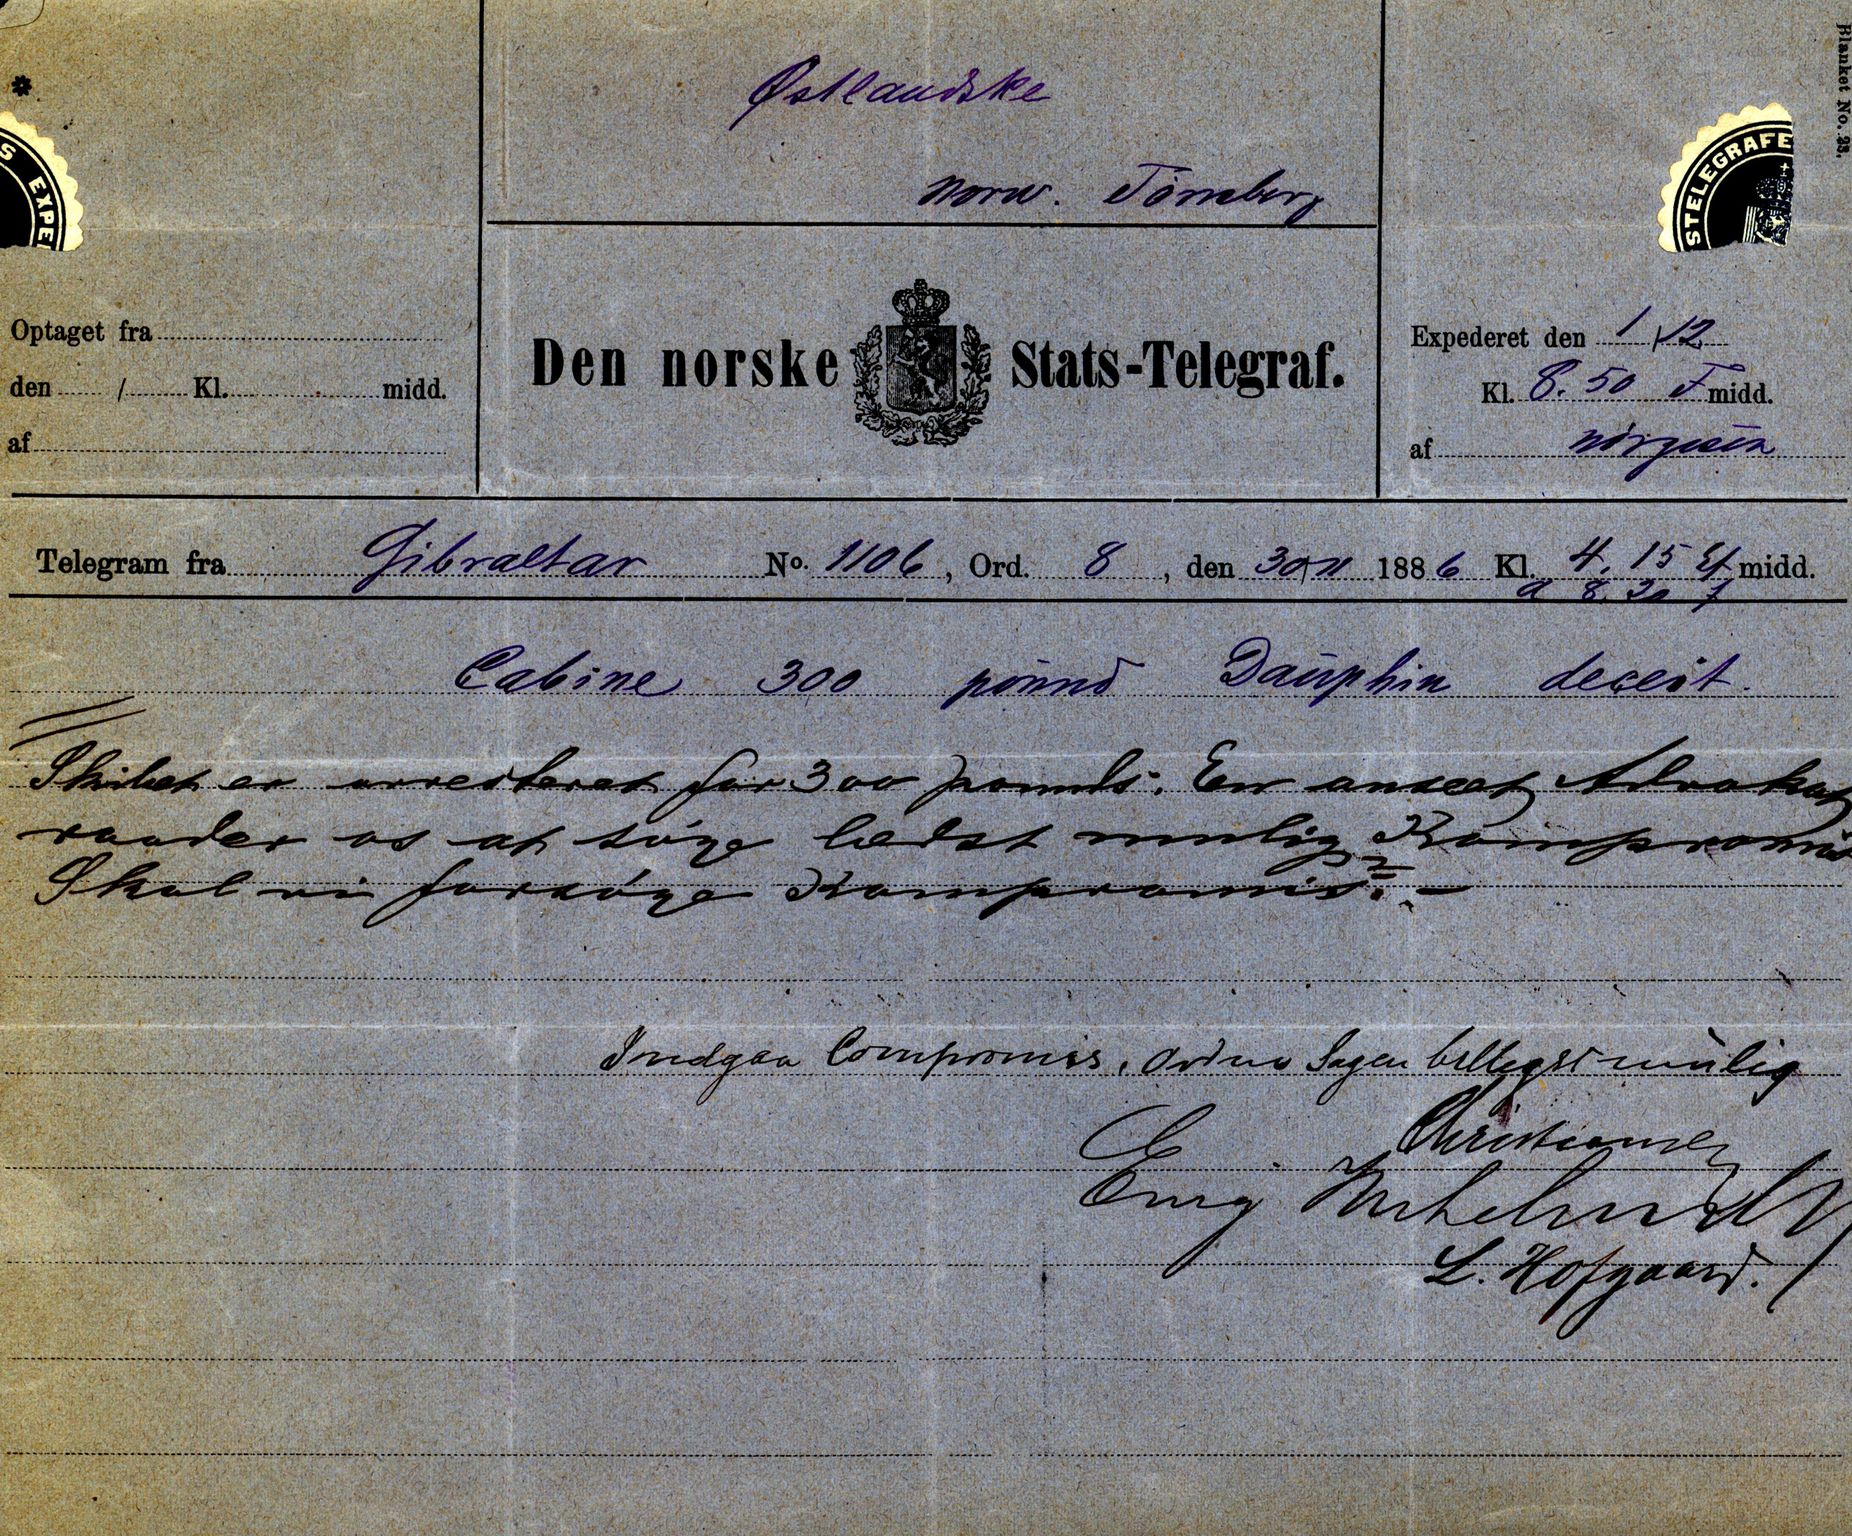 Blanket No. 23.
*
S EXPE
STELEGRAFE
Østlandske
norw. Tönsberg
Optaget fra
den / Kl. midd.
af
Den norske Stats-Telegraf.
Expederet den 1/12
Kl. 8.50 F midd.
af
Telegram fra Gibraltar No. 1106, Ord. 8, den 30/11 1886 Kl. 4.15 Ef midd.
a 8.20 f
Cabine 300 pound Dauphin deceit.
Skibet er arresteret for 300 pounds. En anseet Advokat
raader os at søge bedst mulig Kompromis
Skal vi forsøge Kompromis? —
Indgaa Compromiss, ordne Sagen billigst mulig
Christiansen
L. Hofgaard.